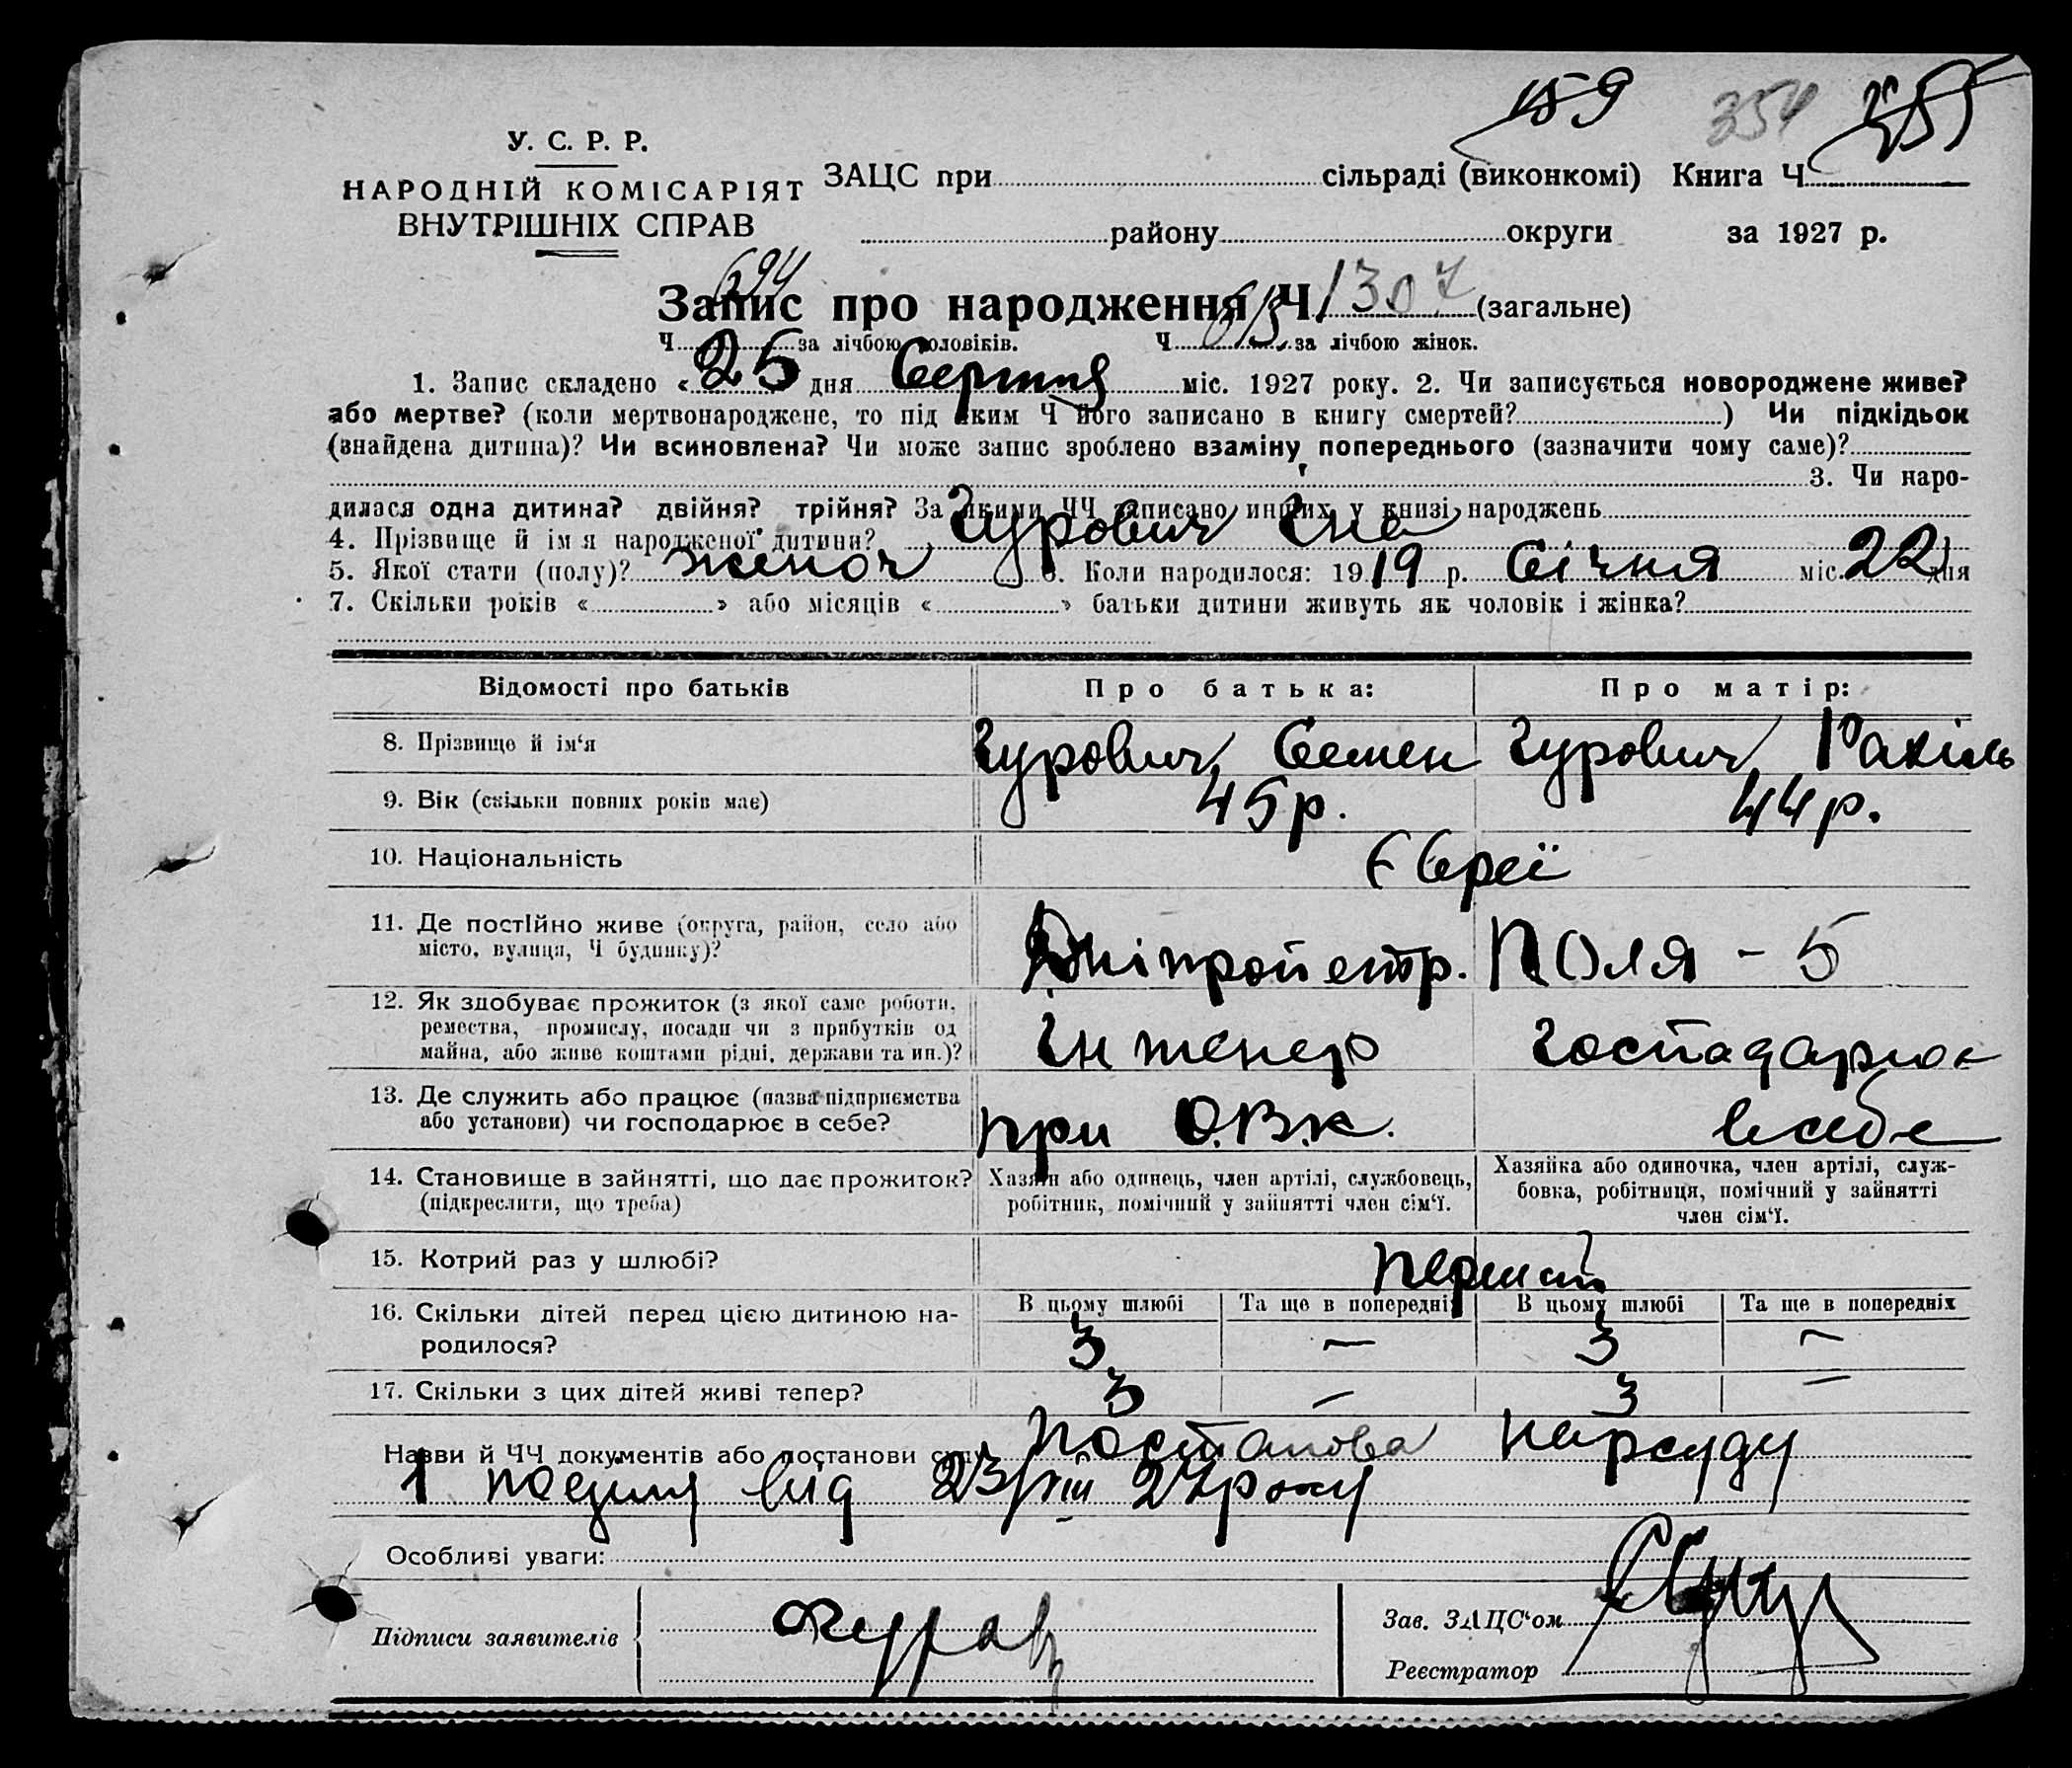 159 354 255
У. С. Р. Р.
НАРОДНІЙ КОМІСАРІЯТ
ВНУТРІШНІХ СПРАВ
ЗАЦС при сільраді (виконкомі) Книга Ч
району округи за 1927 р.
694
Запис про народження Ч 1307 (загальне)
Ч за лічбою чоловіків. Ч 613 за лічбою жінок.
1. Запис складено « 25 дня Серпня міс. 1927 року. 2. Чи записується новороджене живе?
або мертве? (коли мертвонароджене, то під яким Ч його записано в книгу смертей? ) Чи підкідьок
(знайдена дитина)? Чи всиновлена? Чи може запис зроблено взаміну попереднього (зазначити чому саме)?
3. Чи наро-
дилася одна дитина? двійня? трійня? За якими ЧЧ записано инших у книзі народжень
4. Прізвище й ім я народженої дитини? Гурович Їна
5. Якої стати (полу)? жіноч 6. Коли народилося: 1919 р. Січня міс. 22 дня
7. Скільки років « » або місяців « » батьки дитини живуть як чоловік і жінка?
Відомості про батьків Про батька: Про матір:
8. Прізвище й ім'я Гурович Семен Гурович Рахіль
9. Вік (скільки повних років має) 45 р. 44 р.
10. Національність Євреї
11. Де постійно живе (округа, район, село або
місто, вулиця, Ч будинку)? Дніпропетр. Поля - 5
12. Як здобуває прожиток (з якої саме роботи,
ремества, промислу, посади чи з прибутків од
майна, або живе коштами рідні, держави та ин.)? Інженер Господарює
13. Де служить або працює (назва підприємства
або установи) чи господарює в себе? при О.В.К. в себе
14. Становище в зайнятті, що дає прожиток?
(підкреслити, що треба)
Хазяїн або одинець, член артілі, службовець,
робітник, помічний у зайнятті член сім'ї.
Хазяйка або одиночка, член артілі, служ-
бовка, робітниця, помічний у зайнятті
член сім'ї.
15. Котрий раз у шлюбі? перший
16. Скільки дітей перед цією дитиною на-
родилося?
В цьому шлюбі Та ще в попередніх В цьому шлюбі Та ще в попередніх
3 — 3 —
17. Скільки з цих дітей живі тепер? 3 — 3 —
Назви й ЧЧ документів або постанови суду Постанова Нарсуду
1 від 23/VIII 27 року
Особливі уваги:
Підписи заявителів
Зав. ЗАЦС'ом
Реєстратор